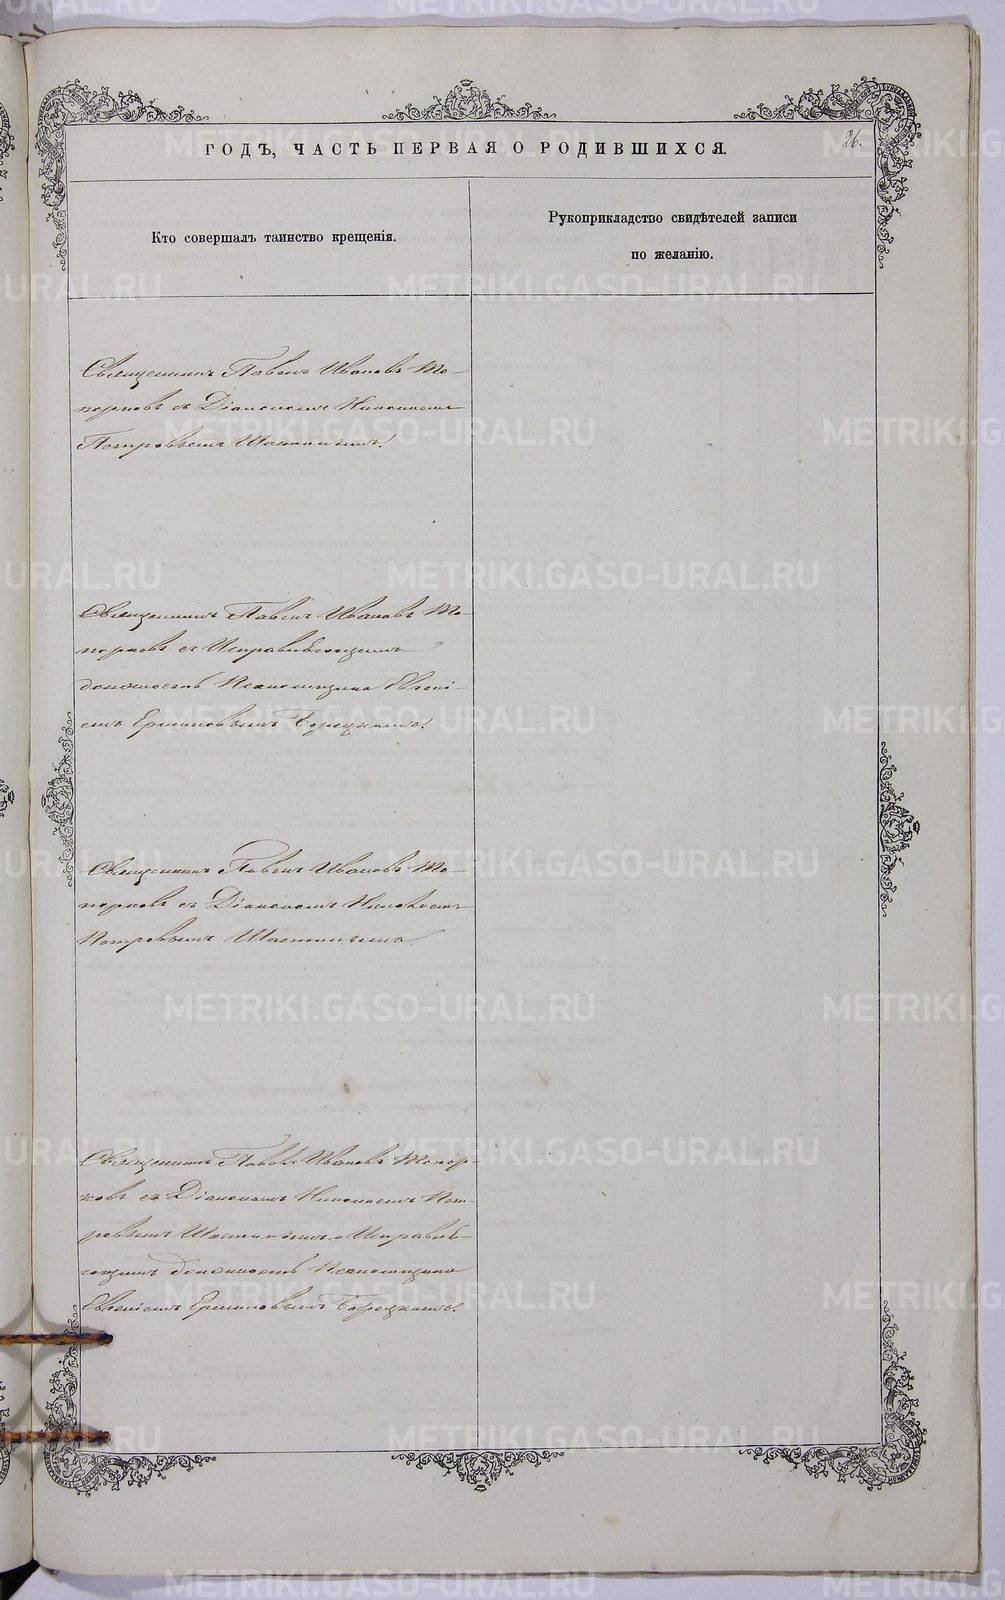 26.
ГОДЪ, ЧАСТЬ ПЕРВАЯ О РОДИВШИХСЯ.
Кто совершалъ таинство крещенія.
Рукоприкладство свидѣтелей записи
по желанію.
Священникъ Павелъ Ивановъ То-
порковъ съ Діакономъ Николаемъ
Петровымъ
Священникъ Павелъ Ивановъ То-
порковъ съ Исправляющимъ
должность Псаломщика Евгені-
емъ
Священникъ Павелъ Ивановъ То-
порковъ съ Діакономъ Николаемъ
Петровымъ
Священникъ Павелъ Ивановъ Топор-
ковъ съ Діакономъ Николаемъ Пет-
ровымъ и Исправля-
ющимъ должность Псаломщика
Евгеніемъ
METRIKI.GASO-URAL.RU